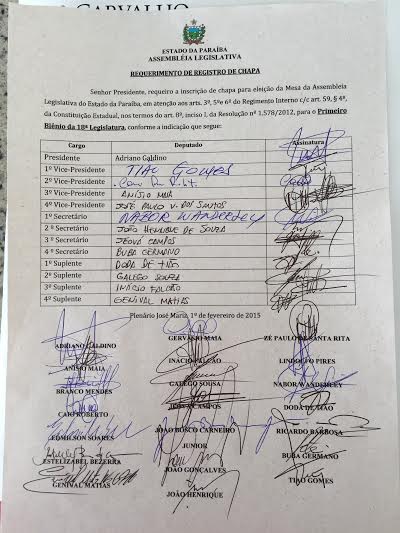 CARVALHO
ESTADO DA PARAÍBA
ASSEMBLÉIA LEGISLATIVA
REQUERIMENTO DE REGISTRO DE CHAPA
Senhor Presidente, requeiro a inscrição de chapa para eleição da Mesa da Assembleia
Legislativa do Estado da Paraíba, em atenção aos arts. 3º, 5ºe 6º do Regimento Interno c/c art. 59, § 4º,
da Constituição Estadual, nos termos do art. 8º, inciso I, da Resolução nº 1.578/2012, para o Primeiro
Biênio da 18ª Legislatura, conforme a indicação que segue:
Cargo Deputado Assinatura
Presidente Adriano Galdino
1º Vice-Presidente TIAO GOMES
2º Vice-Presidente
3º Vice-Presidente ANISIO MAIA
4º Vice-Presidente JOSÉ PAULO V. DOS SANTOS
1º Secretário NABOR WANDERLEY
2 º Secretário JOÃO HENRIQUE DE SOUZA
3 º Secretário JEOVÁ CAMPOS
4 º Secretário BUBA GERMANO
1º Suplente DODA DE TIÃO
2º Suplente GALEGO SOUZA
3º Suplente INÁCIO FALCÃO
4º Suplente GENIVAL MATIAS
Plenário José Mariz, 1º de fevereiro de 2015
ADRIANO GALDINO GERVÁSIO MAIA ZÉ PAULO DE SANTA RITA
ANÍSIO MAIA INÁCIO FALCÃO LINDOLFO PIRES
BRANCO MENDES GALEGO SOUSA NABOR WANDERLEY
CAIO ROBERTO CAMPOS DODA DE TIÃO
EDMILSON SOARES JOÃO BOSCO CARNEIRO RICARDO BARBOSA
JUNIOR
ESTELIZABEL BEZERRA JOÃO GONÇALVES BUBA GERMANO
GENIVAL MATIAS JOÃO HENRIQUE TIÃO GOMES